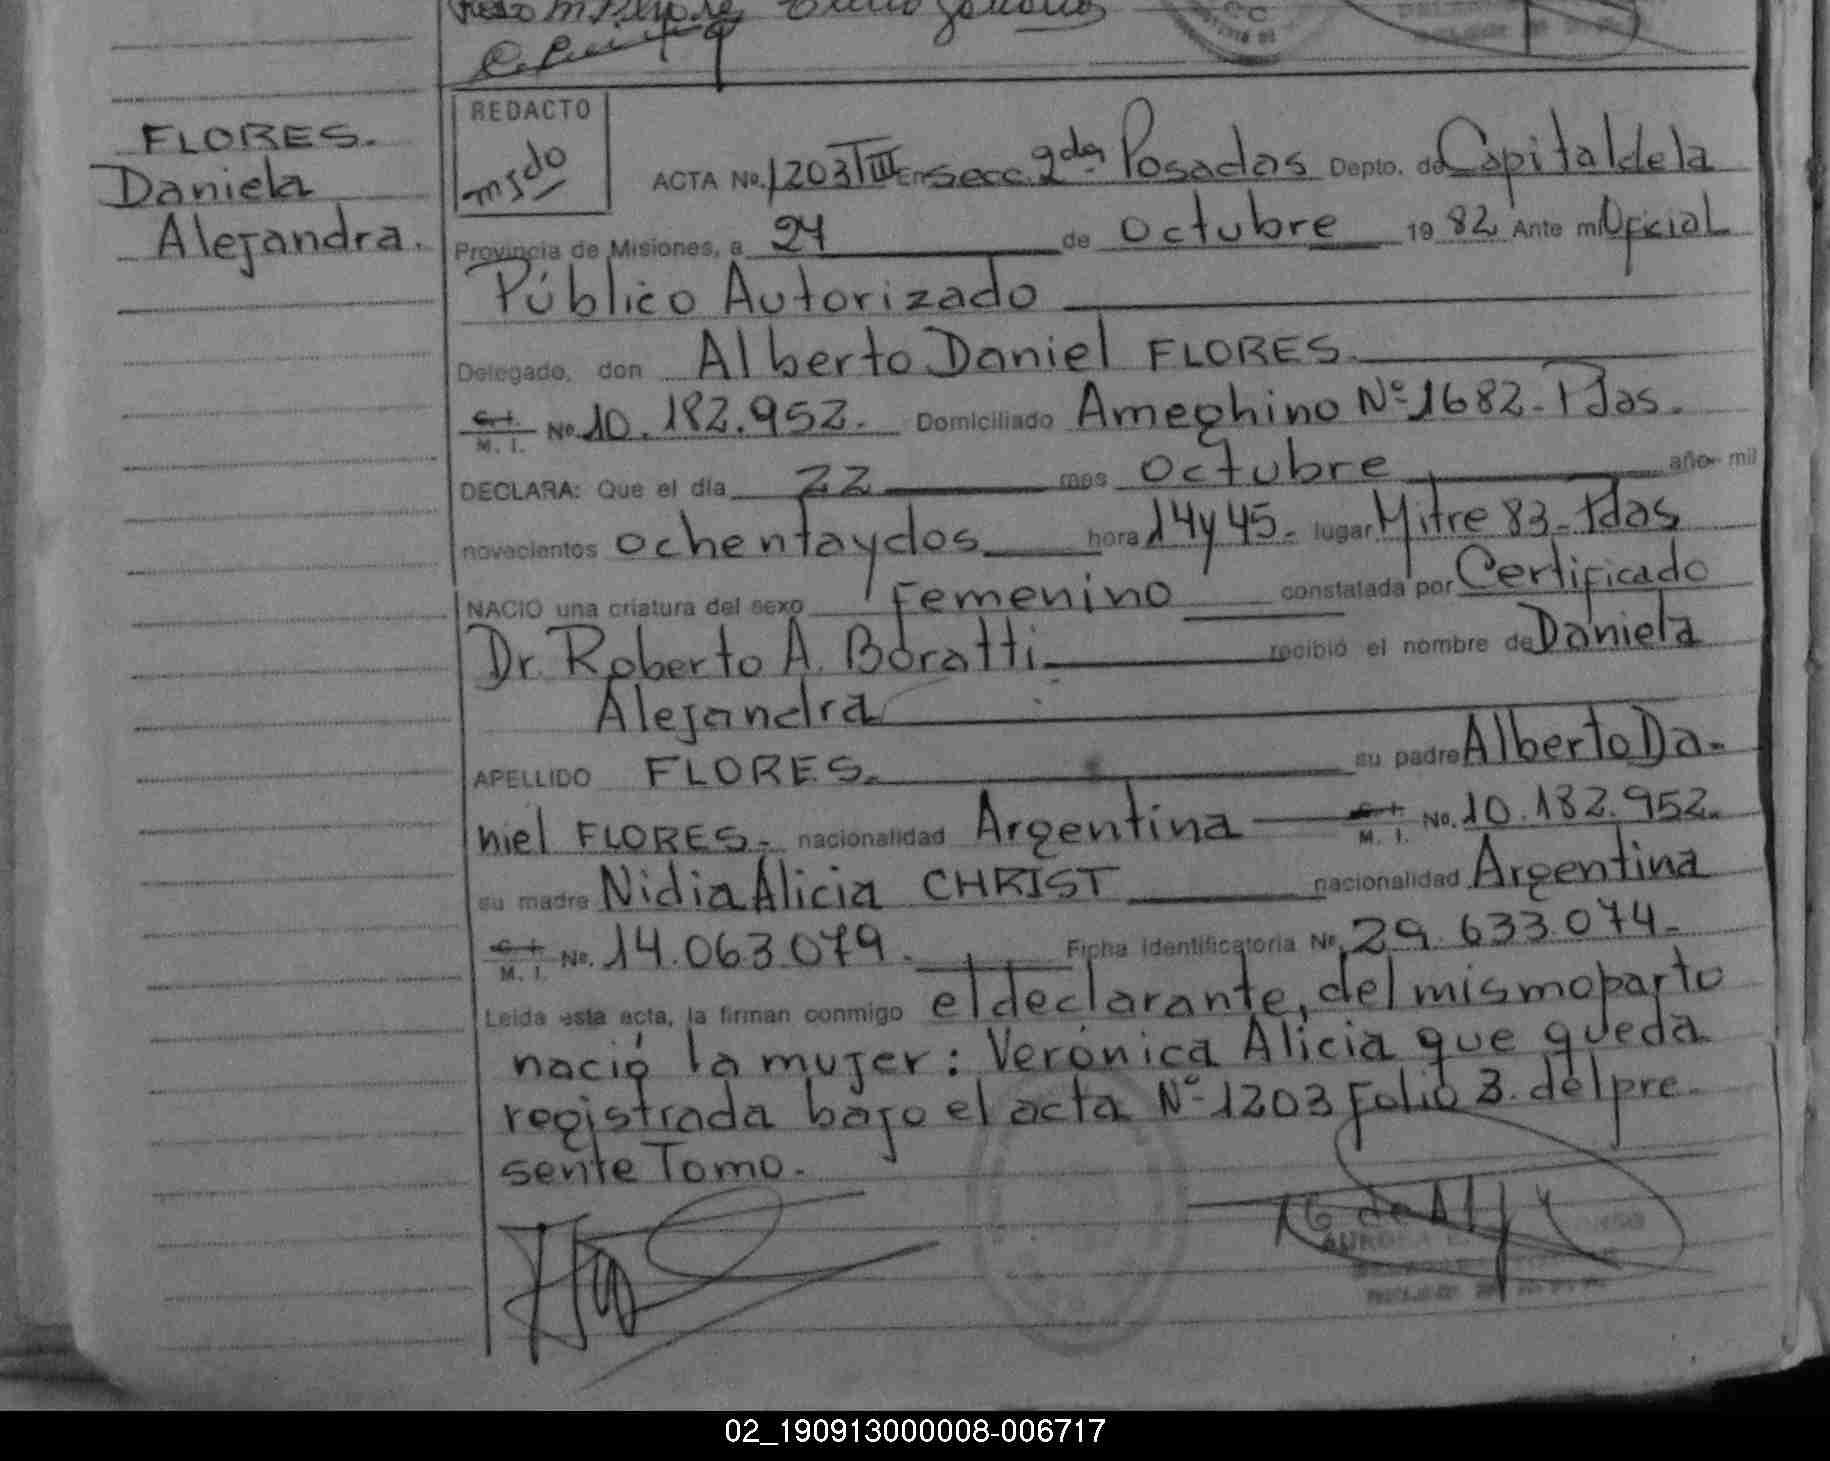 FLORES.
Daniela
Alejandra.
REDACTO
ACTA No. 1203 TIII En secc. 2da Posadas Depto. de Capital de la
Provincia de Misiones, a 24 de Octubre 19 82 Ante mi Oficial
Público Autorizado
Delegado, don Alberto Daniel FLORES.
M. I. No. 10.182.952. Domiciliado Ameghino Nº 1682 - Pdas.
DECLARA: Que el día 22 mes Octubre año mil
novecientos ochenta y dos hora 14 y 45 - lugar Mitre 83 - Pdas
NACIO una criatura del sexo Femenino constatada por Certificado
Dr. Roberto A. Boratti recibió el nombre de Daniela
Alejandra
APELLIDO FLORES. su padre Alberto Da-
niel FLORES. nacionalidad Argentina M. I. No. 10.182.952.
su madre Nidia Alicia CHRIST nacionalidad Argentina
M. I. No. 14.063.079. Ficha identificatoria No. 29.633.074.
Leída esta acta, la firman conmigo el declarante, del mismo parto
nació la mujer: Verónica Alicia que queda
registrada bajo el acta Nº 1203 Folio 3. del pre-
sente Tomo.
02_190913000008-006717